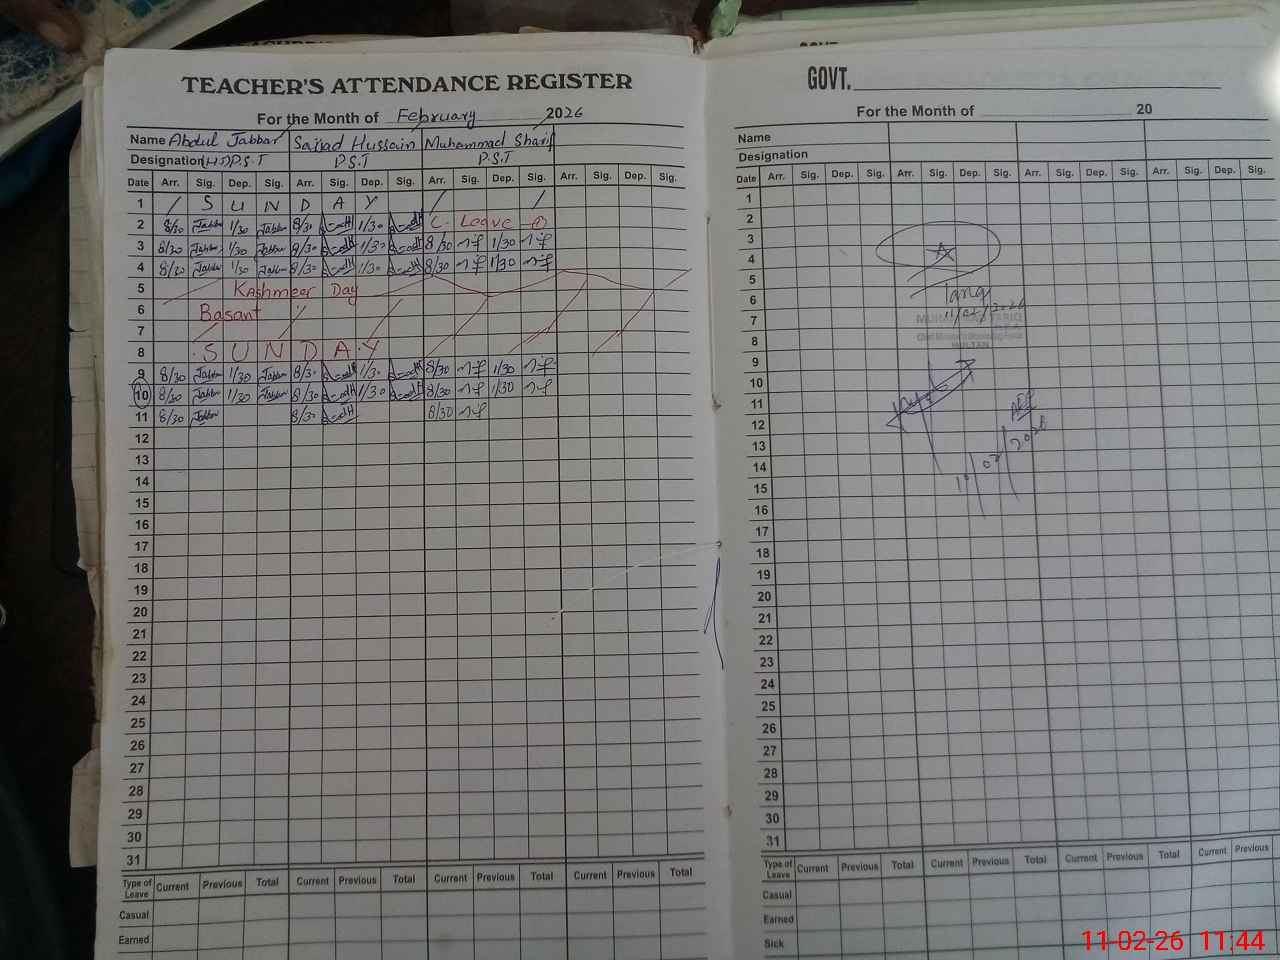 TEACHER'S ATTENDANCE REGISTER
For the Month of February 2026
Name Abdul Jabbar Sajjad Hussain Muhammad Sharif
Designation (HT) P.S.T P.S.T P.S.T
Date Arr. Sig. Dep. Sig. Arr. Sig. Dep. Sig. Arr. Sig. Dep. Sig. Arr. Sig. Dep. Sig.
1 / S U N D A Y / /
2 8/30 Jabbar 1/30 Jabbar 8/30 1/30 C. Leave
3 8/30 Jabbar 1/30 Jabbar 8/30 1/30 8/30 1/30
4 8/30 Jabbar 1/30 Jabbar 8/30 1/30 8/30 1/30
5 Kashmeer Day
6 Basant
7
8 S U N D A Y
9 8/30 Jabbar 1/30 Jabbar 8/30 1/30 8/30 1/30
10 8/30 Jabbar 1/30 Jabbar 8/30 1/30 8/30 1/30
11 8/30 Jabbar 8/30 8/30
12
13
14
15
16
17
18
19
20
21
22
23
24
25
26
27
28
29
30
31
Type of Leave Current Previous Total Current Previous Total Current Previous Total Current Previous Total
Casual
Earned
GOVT.
For the Month of 20
Name
Designation
Date Arr. Sig. Dep. Sig. Arr. Sig. Dep. Sig. Arr. Sig. Dep. Sig. Arr. Sig. Dep. Sig.
1
2
3
4
5
6
7
8
9
10
11
12
13
14
15
16
17
18
19
20
21
22
23
24
25
26
27
28
29
30
31
11/02/2026
MULTAN
AEO
10/02/2026
Type of Leave Current Previous Total Current Previous Total Current Previous Total Current Previous
Casual
Earned
Sick
11-02-26 11:44